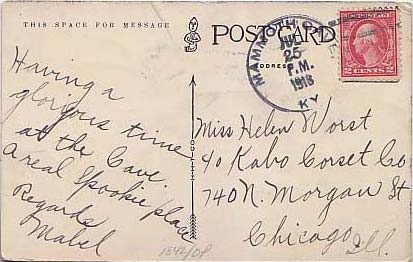 THIS SPACE FOR MESSAGE
POST CARD
ADDRESS
MAMMOTH
JUL
25
P.M.
1918
KY
2 CENTS 2
Having a
glorious time
at the Cave.
A real Spookie place
Regards
Mabel
Miss Helen Worst
c/o Kabo Corset Co
740 N. Morgan St
Chicago
Ill.
1842/DP